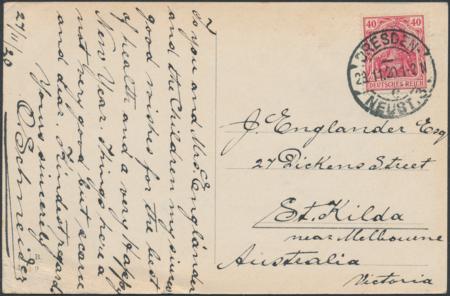 27/11/20
To you and Mrs. Englánder
and the Children my sincere
good wishes for the best
of health and a very happy
New Year. Things here
not very good, but scarce
and dear. Kindest regards
Yours sincerely
O Schneider
40 40
DEUTSCHES REICH
DRESDEN-
28.11.20.1-2N
NEUST.
J. Englander Esq
27 Dickens Street
St. Kilda
near Melbourne
Australia
Victoria